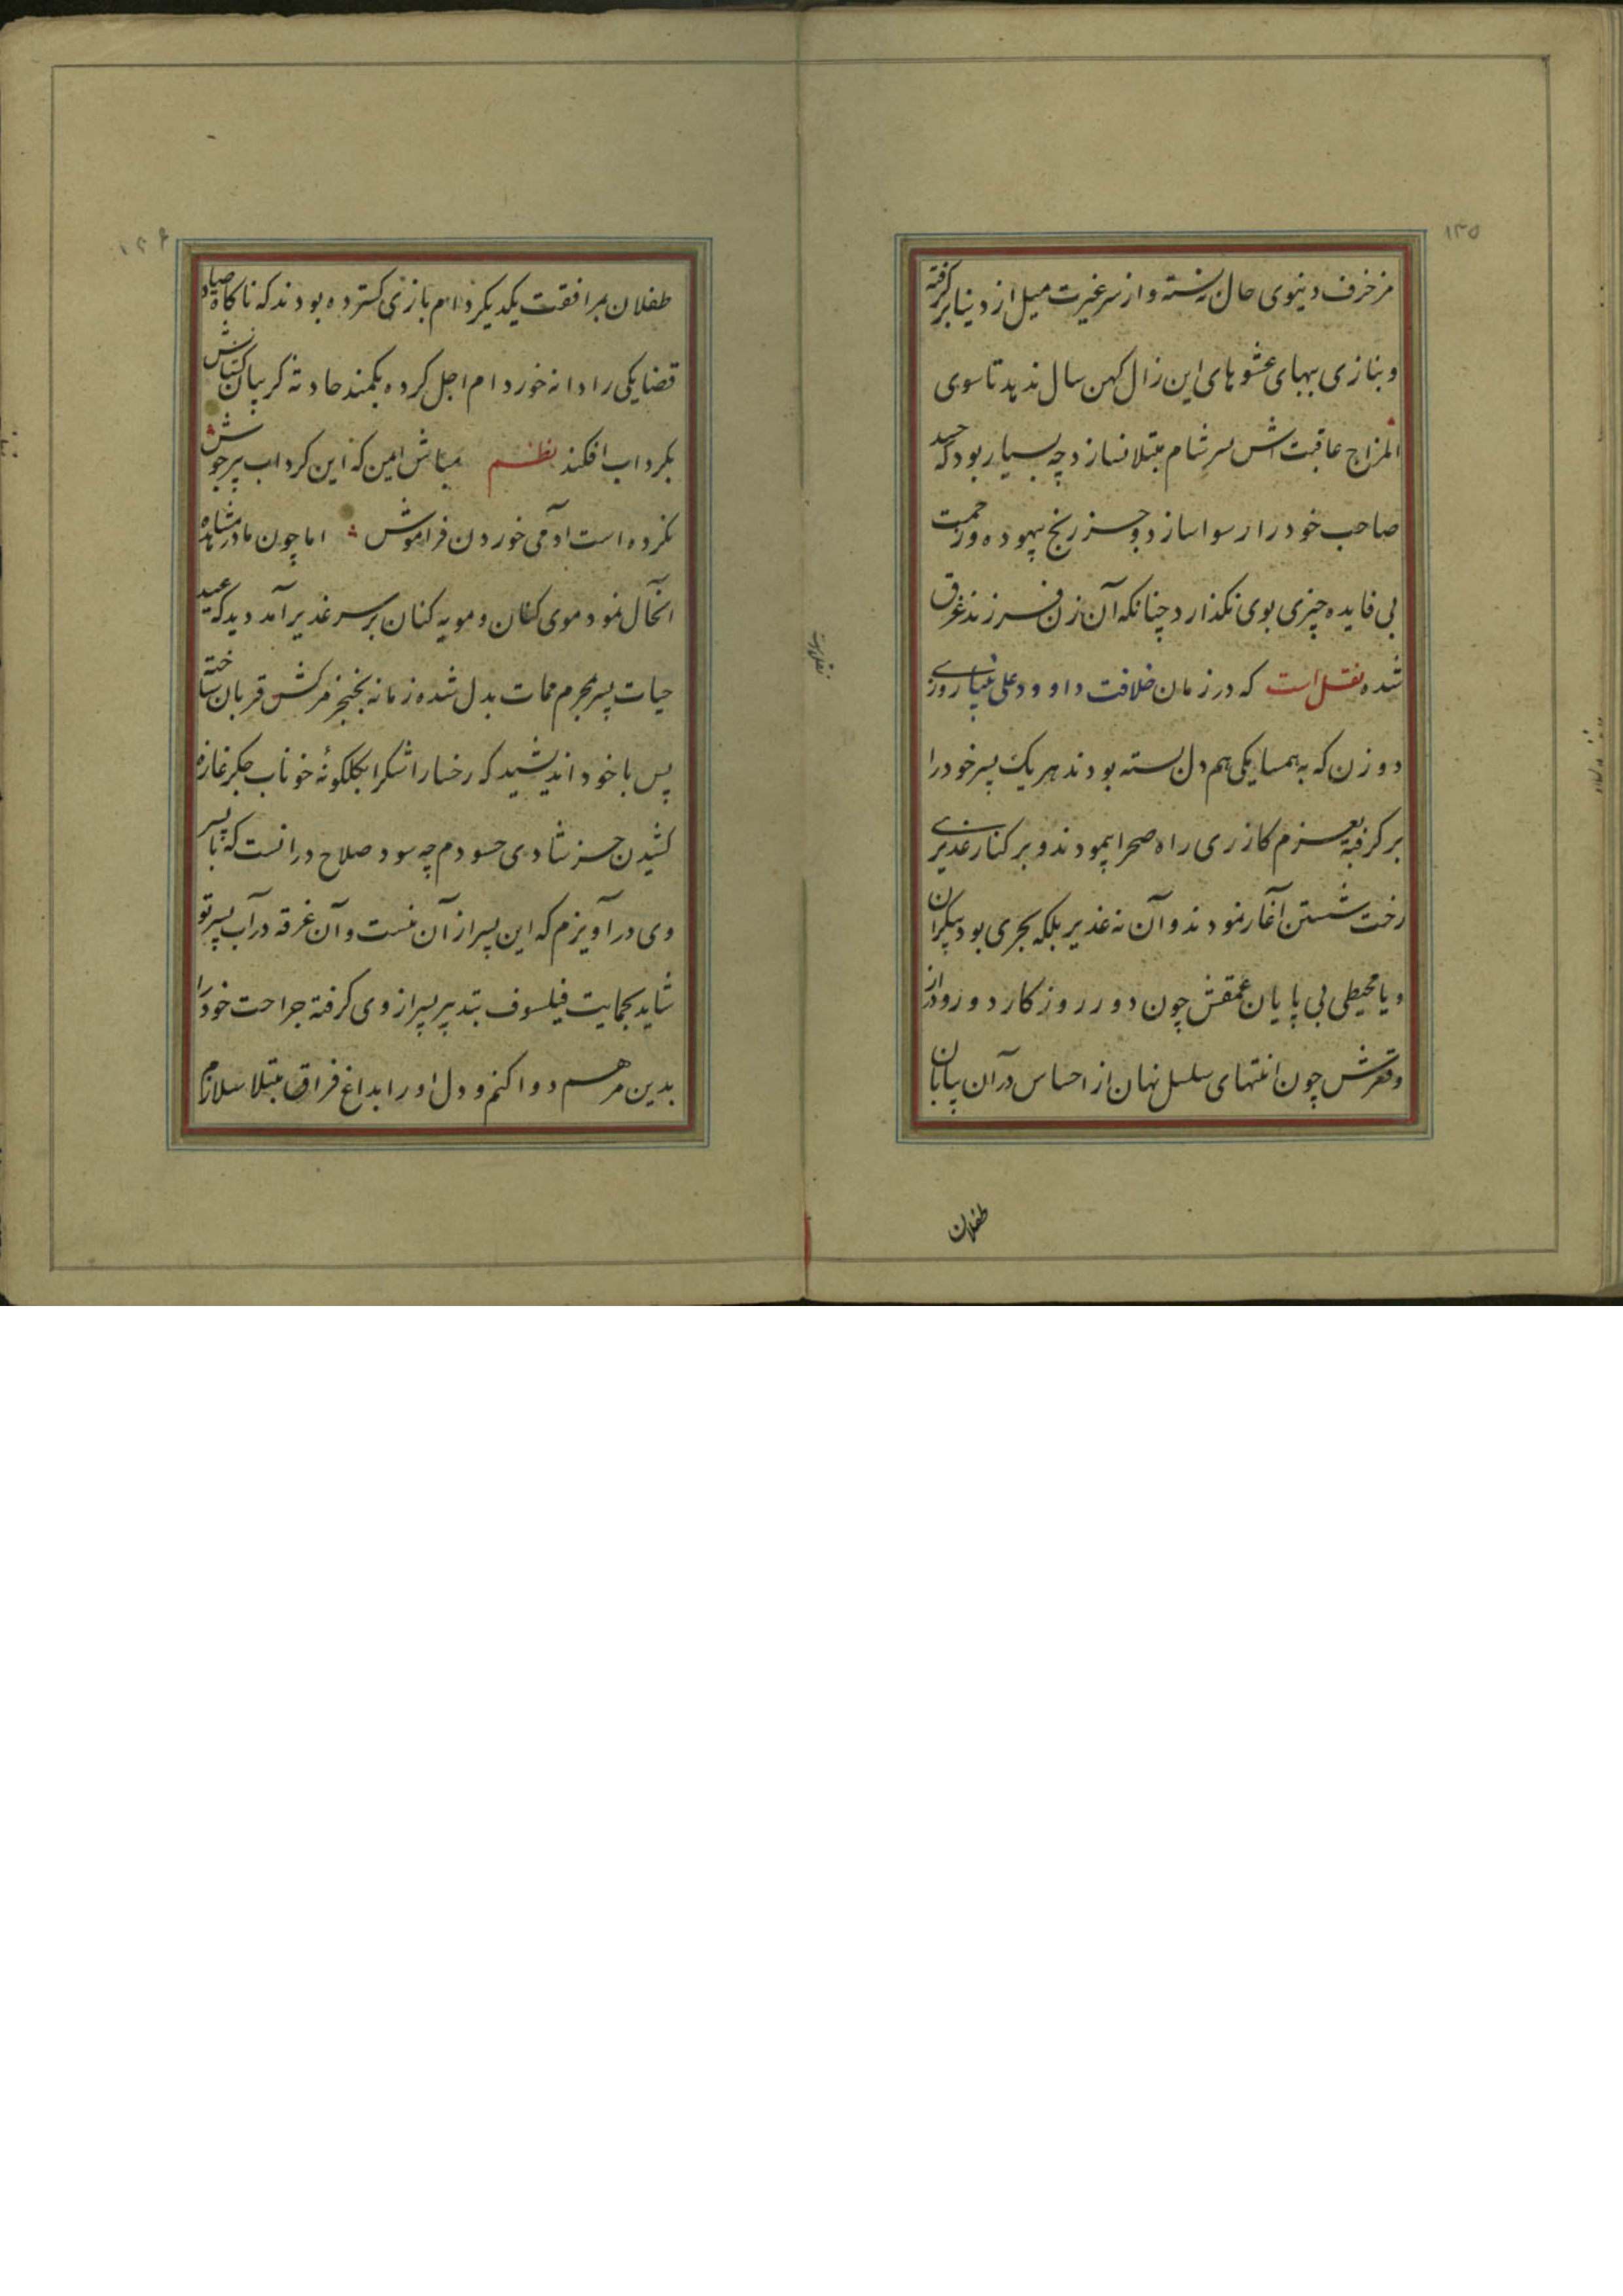 ۱۳۵
مزخرف دنیوی حال ندانسته و از سر غیرت میل از دنیا برگرفته
و بنازی ببهای عشوهای این زال کهن سال ندهد تا سوی
المزاج عاقبت اش سرشام مبتلا نسازد چه بسیار بود که حسد
صاحب خود را رسوا سازد و جز رنج بیهوده و زحمت
بی فایده چیزی بوی نکذارد چنانکه آن زن فرزند غرق
شده نقل است که در زمان خلافت داوود علی نبینا روزی
دو زن که به همسایکی هم دل بسته بودند هر یک پسر خود را
بر کرفته بعزم کازری راه صحرا پیمودند و بر کنار غدیری
رخت شستن آغاز نمودند و آن نه غدیر بلکه بحری بود بیکران
و یا محیطی بی پایان عمقش چون دور روزکار دور و دراز
و قعرش چون انتهای سلسل نهان از احساس در آن بیابان
طفلان
۱۳۶
طفلان بمرافقت یکدیکر دام بازی کسترده بودند که ناکاه صیاد
قضا یکی را دانه خور دام اجل کرده بکمند حادثه کریبان کشانش
بکرداب افکند نظم مباش امین که این کرداب پرجوش
نکرده است ادمی خوردن فراموش اما چون مادر مشاهده
انحال نمود موی کنان و مویه کنان بر سر غدیر آمد دید که عید
حیات پسر بمحرم ممات بدل شده زمانه بخنجر مرکش قربان ساخته
پس با خود اندیشید که رخسار اشکرا بکلکونهٔ خوناب جکر غازه
کشیدن جز شادی حسودم چه سود صلاح در انست که با پسر
وی در آویزم که این پسر از آن منست و آن غرقه در آب پسر تو
شاید بحمایت فیلسوف تدبیر پسر از وی کرفته جراحت خود را
بدین مرهم دوا کنم و دل او را بداغ فراق مبتلا سلازم